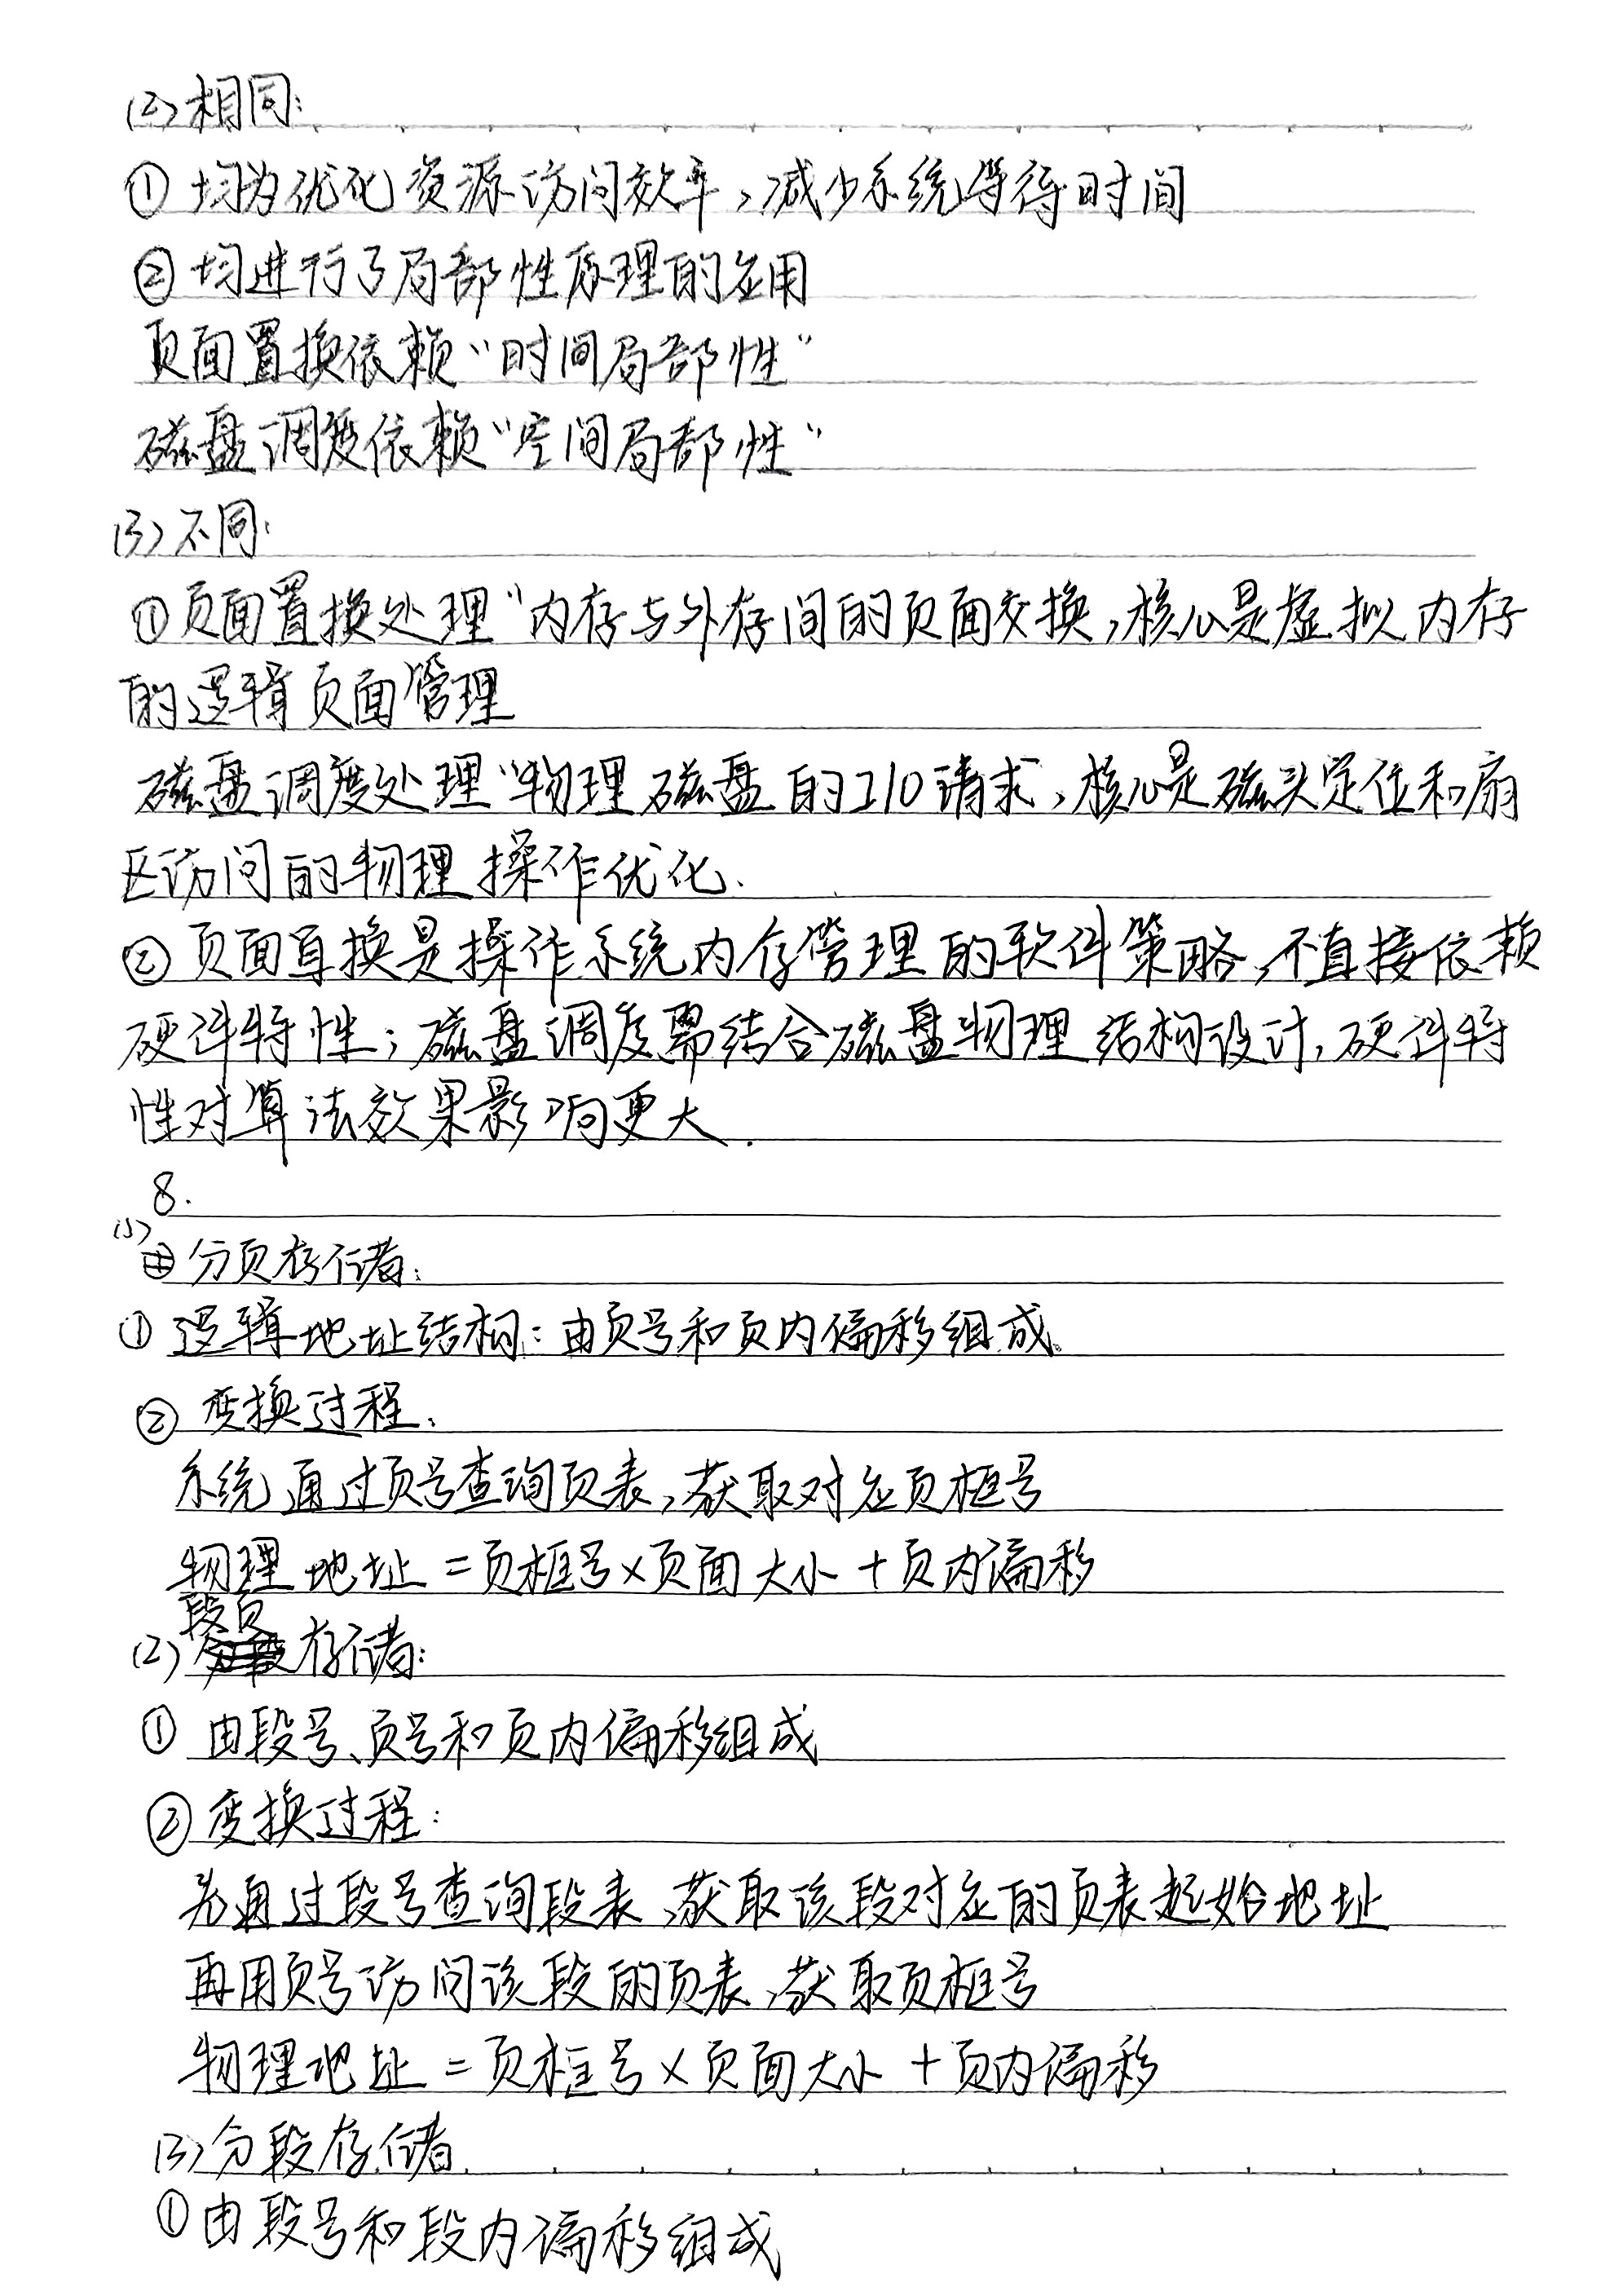 (2)相同:
①均为优化资源访问效率,减少系统等待时间
②均进行了局部性原理的应用
页面置换依赖"时间局部性"
磁盘调度依赖"空间局部性"
(3)不同:
①页面置换处理"内存与外存间的页面交换,核心是虚拟内存
的逻辑页面管理
磁盘调度处理"物理磁盘的I/O请求,核心是磁头定位和扇
区访问的物理操作优化.
②页面置换是操作系统内存管理的软件策略,不直接依赖
硬件特性;磁盘调度需结合磁盘物理结构设计,硬件特
性对算法效果影响更大.
8.
(1)
分页存储:
①逻辑地址结构:由页号和页内偏移组成.
②变换过程:
系统通过页号查询页表,获取对应页框号
物理地址=页框号×页面大小+页内偏移
(2)段页存储:
①由段号、页号和页内偏移组成
②变换过程:
先通过段号查询段表,获取该段对应的页表起始地址
再用页号访问该段的页表,获取页框号
物理地址=页框号×页面大小+页内偏移
(3)分段存储
①由段号和段内偏移组成